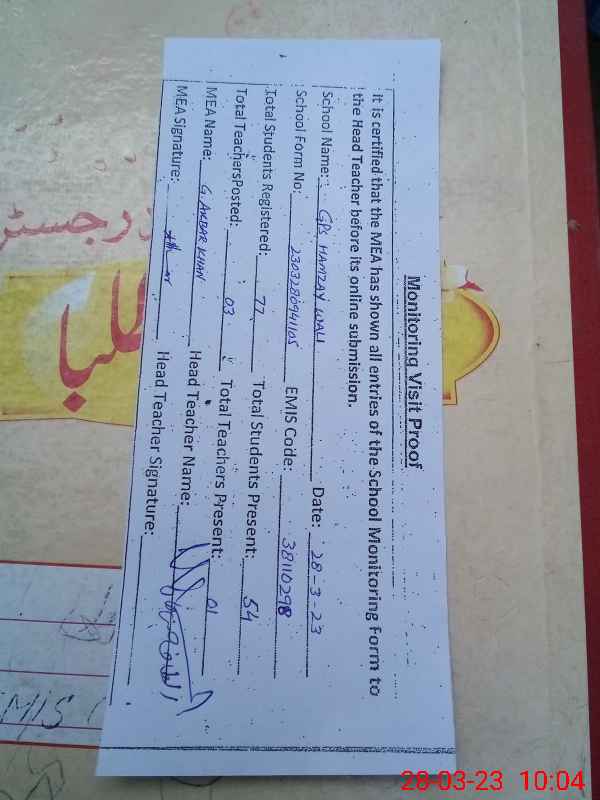 Monitoring Visit Proof
It is certified that the MEA has shown all entries of the School Monitoring Form to
the Head Teacher before its online submission.
School Name: GPS HAMZAY WALI Date: 28-3-23
School Form No: 2303280941105 EMIS Code: 38110298
Total Students Registered: 77 Total Students Present: 54
Total TeachersPosted: 03 Total Teachers Present: 01
MEA Name: G. AKBAR KHAN Head Teacher Name:
MEA Signature: Head Teacher Signature:
رجسٹر
طلبا
EMIS
28-03-23 10:04